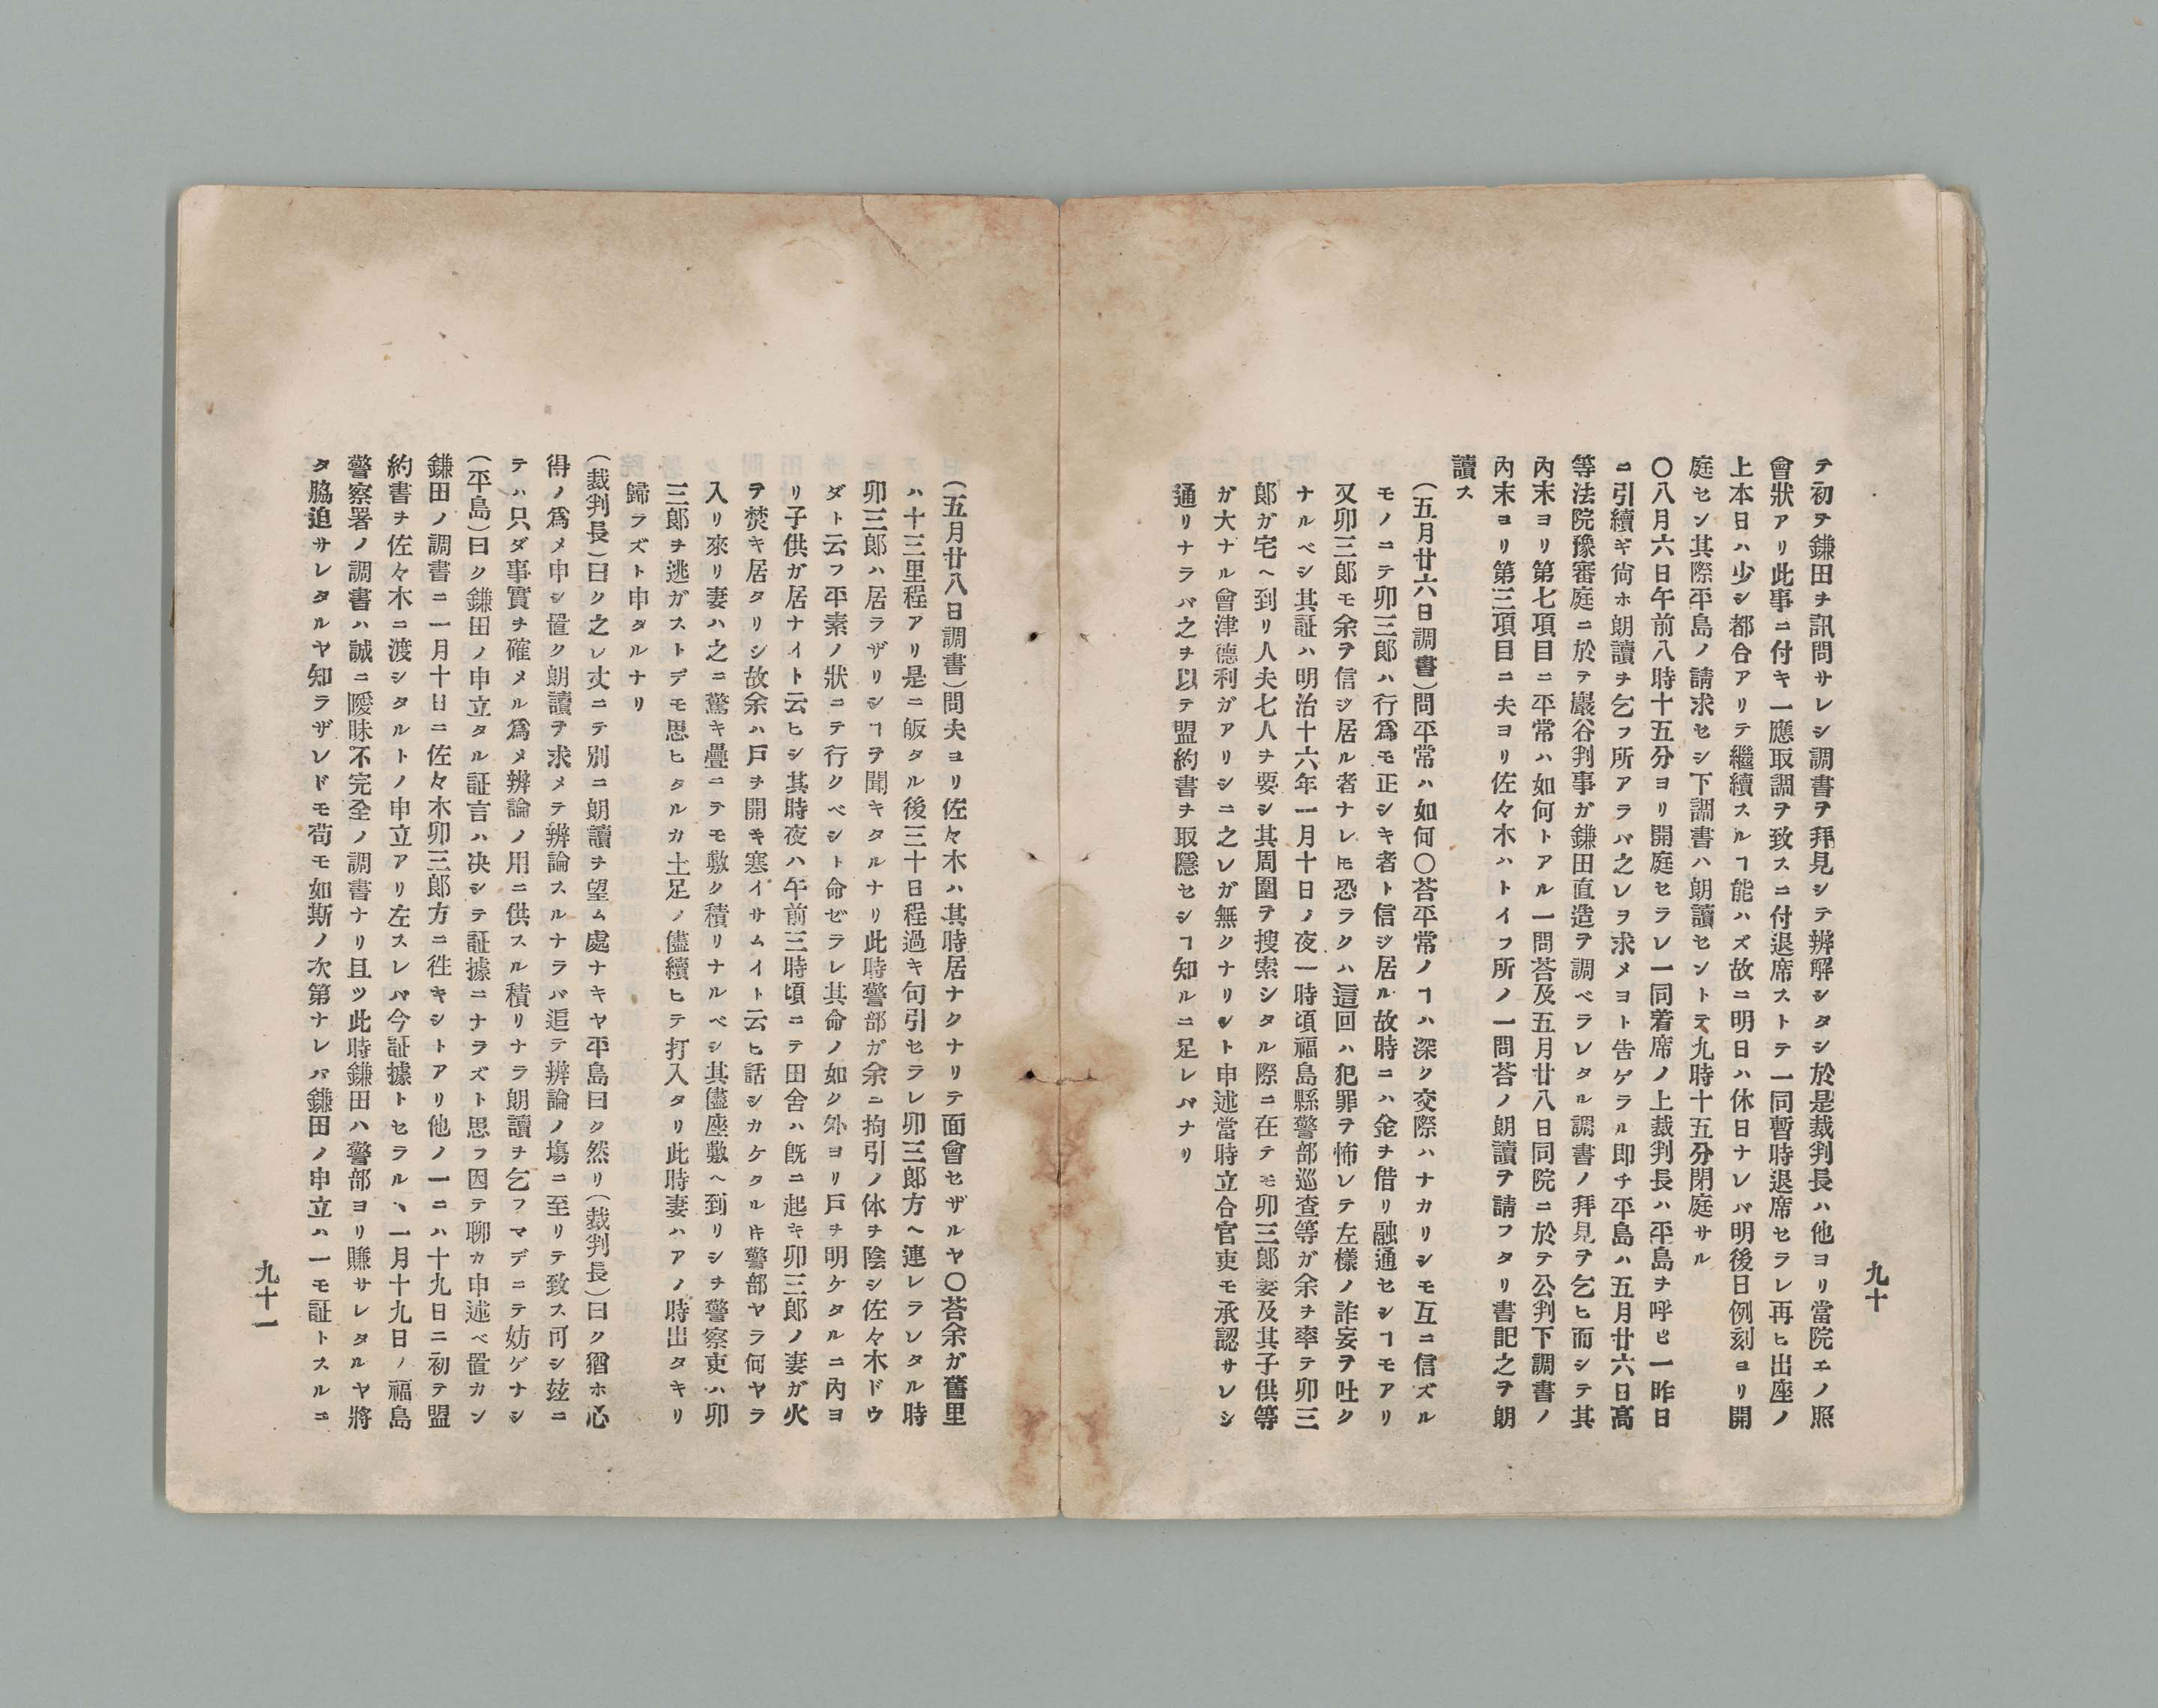 九十
テ初テ鎌田ヲ訊問サレシ調書ヲ拜見シテ辨解シタシ於是裁判長ハ他ヨリ當院エノ照
會狀アリ此事ニ付キ一應取調ヲ致スニ付退席ストテ一同暫時退席セラレ再ヒ出座ノ
上本日ハ少シ都合アリテ繼續スルヿ能ハズ故ニ明日ハ休日ナレバ明後日例刻ヨリ開
庭セン其際平島ノ請求セシ下調書ハ朗讀セントテ九時十五分閉庭サル
〇八月六日午前八時十五分ヨリ開庭セラレ一同着席ノ上裁判長ハ平島ヲ呼ビ一昨日
ニ引續ギ尙ホ朗讀ヲ乞フ所アラバ之レヲ求メヨト告ゲラル即チ平島ハ五月廿六日高
等法院豫審庭ニ於テ巖谷判事ガ鎌田直造ヲ調ベラレタル調書ノ拜見ヲ乞ヒ而シテ其
內末ヨリ第七項目ニ平常ハ如何トアル一問荅及五月廿八日同院ニ於テ公判下調書ノ
內末ヨリ第三項目ニ夫ヨリ佐々木ハトイフ所ノ一問荅ノ朗讀ヲ請フタリ書記之ヲ朗
讀ス
(五月廿六日調書)問平常ハ如何〇荅平常ノヿハ深ク交際ハナカリシモ互ニ信ズル
モノニテ卯三郎ハ行爲モ正シキ者ト信ジ居ル故時ニハ金ヲ借リ融通セシヿモアリ
又卯三郎モ余ヲ信ジ居ル者ナレ𪜈恐ラクハ這回ハ犯罪ヲ怖レテ左樣ノ詐妄ヲ吐ク
ナルベシ其証ハ明治十六年一月十日ノ夜一時頃福島縣警部巡査等ガ余ヲ率テ卯三
郎ガ宅ヘ到リ人夫七人ヲ要シ其周圍ヲ搜索シタル際ニ在テモ卯三郎妻及其子供等
ガ大ナル會津德利ガアリシニ之レガ無クナリシト申述當時立合官吏モ承認サレシ
通リナラバ之ヲ以テ盟約書ヲ取隱セシヿ知ルニ足レバナリ
(五月廿八日調書)問夫ヨリ佐々木ハ其時居ナクナリテ面會セザルヤ〇荅余ガ舊里
ハ十三里程アリ是ニ皈タル後三十日程過キ句引セラレ卯三郎方ヘ連レラレタル時
卯三郎ハ居ラザリシヿヲ聞キタルナリ此時警部ガ余ニ拘引ノ体ヲ陰シ佐々木ドウ
ダト云フ平素ノ狀ニテ行クベシト命ゼラレ其命ノ如ク外ヨリ戶ヲ明ケタルニ內ヨ
リ子供ガ居ナイト云ヒシ其時夜ハ午前三時頃ニテ田舍ハ旣ニ起キ卯三郎ノ妻ガ火
ヲ焚キ居タリシ故余ハ戶ヲ開キ塞イサムイト云ヒ話シカケタル𬼀警部ヤラ何ヤラ
入リ來リ妻ハ之ニ驚キ疊ニテモ敷ク積リナルベシ其儘座敷ヘ到リシヲ警察吏ハ卯
三郎ヲ逃ガストデモ思ヒタルカ土足ノ儘續ヒテ打入タリ此時妻ハアノ時出タキリ
歸ラズト申タルナリ
(裁判長)曰ク之レ丈ニテ別ニ朗讀ヲ望ム處ナキヤ平島曰ク然リ(裁判長)曰ク猶ホ心
得ノ爲メ申シ置ク朗讀ヲ求メテ辨論スルナラバ追テ辨論ノ塲ニ至リテ致ス可シ玆ニ
テハ只ダ事實ヲ確メル爲メ辨論ノ用ニ供スル積リナラ朗讀ヲ乞フマデニテ妨ゲナシ
(平島)曰ク鎌田ノ申立タル証言ハ决シテ証據ニナラズト思フ因テ聊カ申述ベ置カン
鎌田ノ調書ニ一月十日ニ佐々木卯三郎方ニ徃キシトアリ他ノ一ニハ十九日ニ初テ盟
約書ヲ佐々木ニ渡シタルトノ申立アリ左スレバ今証據トセラルヽ一月十九日ノ福島
警察署ノ調書ハ誠ニ曖昧不完全ノ調書ナリ且ツ此時鎌田ハ警部ヨリ賺サレタルヤ將
タ脇迫サレタルヤ知ラザレドモ苟モ如斯ノ次第ナレバ鎌田ノ申立ハ一モ証トスルニ
九十一